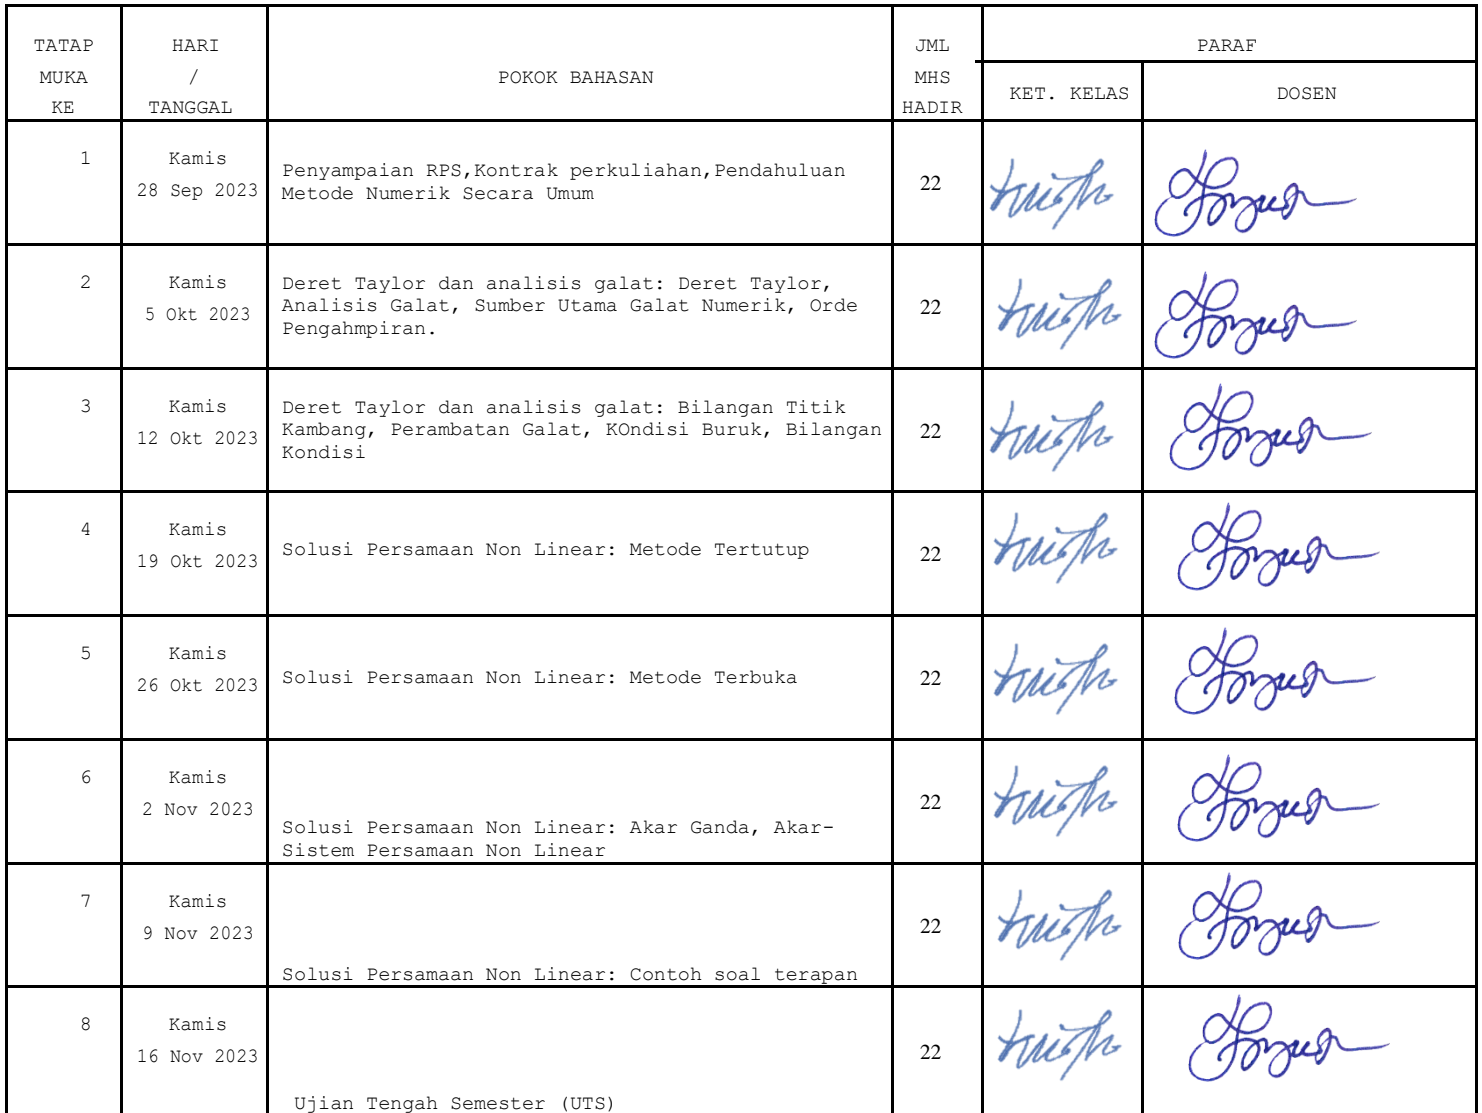 TATAP MUKA KE
HARI / TANGGAL
POKOK BAHASAN
JML MHS HADIR
PARAF
KET. KELAS
DOSEN
1
Kamis
28 Sep 2023
Penyampaian RPS,Kontrak perkuliahan,Pendahuluan
Metode Numerik Secara Umum
22
2
Kamis
5 Okt 2023
Deret Taylor dan analisis galat: Deret Taylor,
Analisis Galat, Sumber Utama Galat Numerik, Orde
Pengahmpiran.
22
3
Kamis
12 Okt 2023
Deret Taylor dan analisis galat: Bilangan Titik
Kambang, Perambatan Galat, KOndisi Buruk, Bilangan
Kondisi
22
4
Kamis
19 Okt 2023
Solusi Persamaan Non Linear: Metode Tertutup
22
5
Kamis
26 Okt 2023
Solusi Persamaan Non Linear: Metode Terbuka
22
6
Kamis
2 Nov 2023
Solusi Persamaan Non Linear: Akar Ganda, Akar-
Sistem Persamaan Non Linear
22
7
Kamis
9 Nov 2023
Solusi Persamaan Non Linear: Contoh soal terapan
22
8
Kamis
16 Nov 2023
Ujian Tengah Semester (UTS)
22